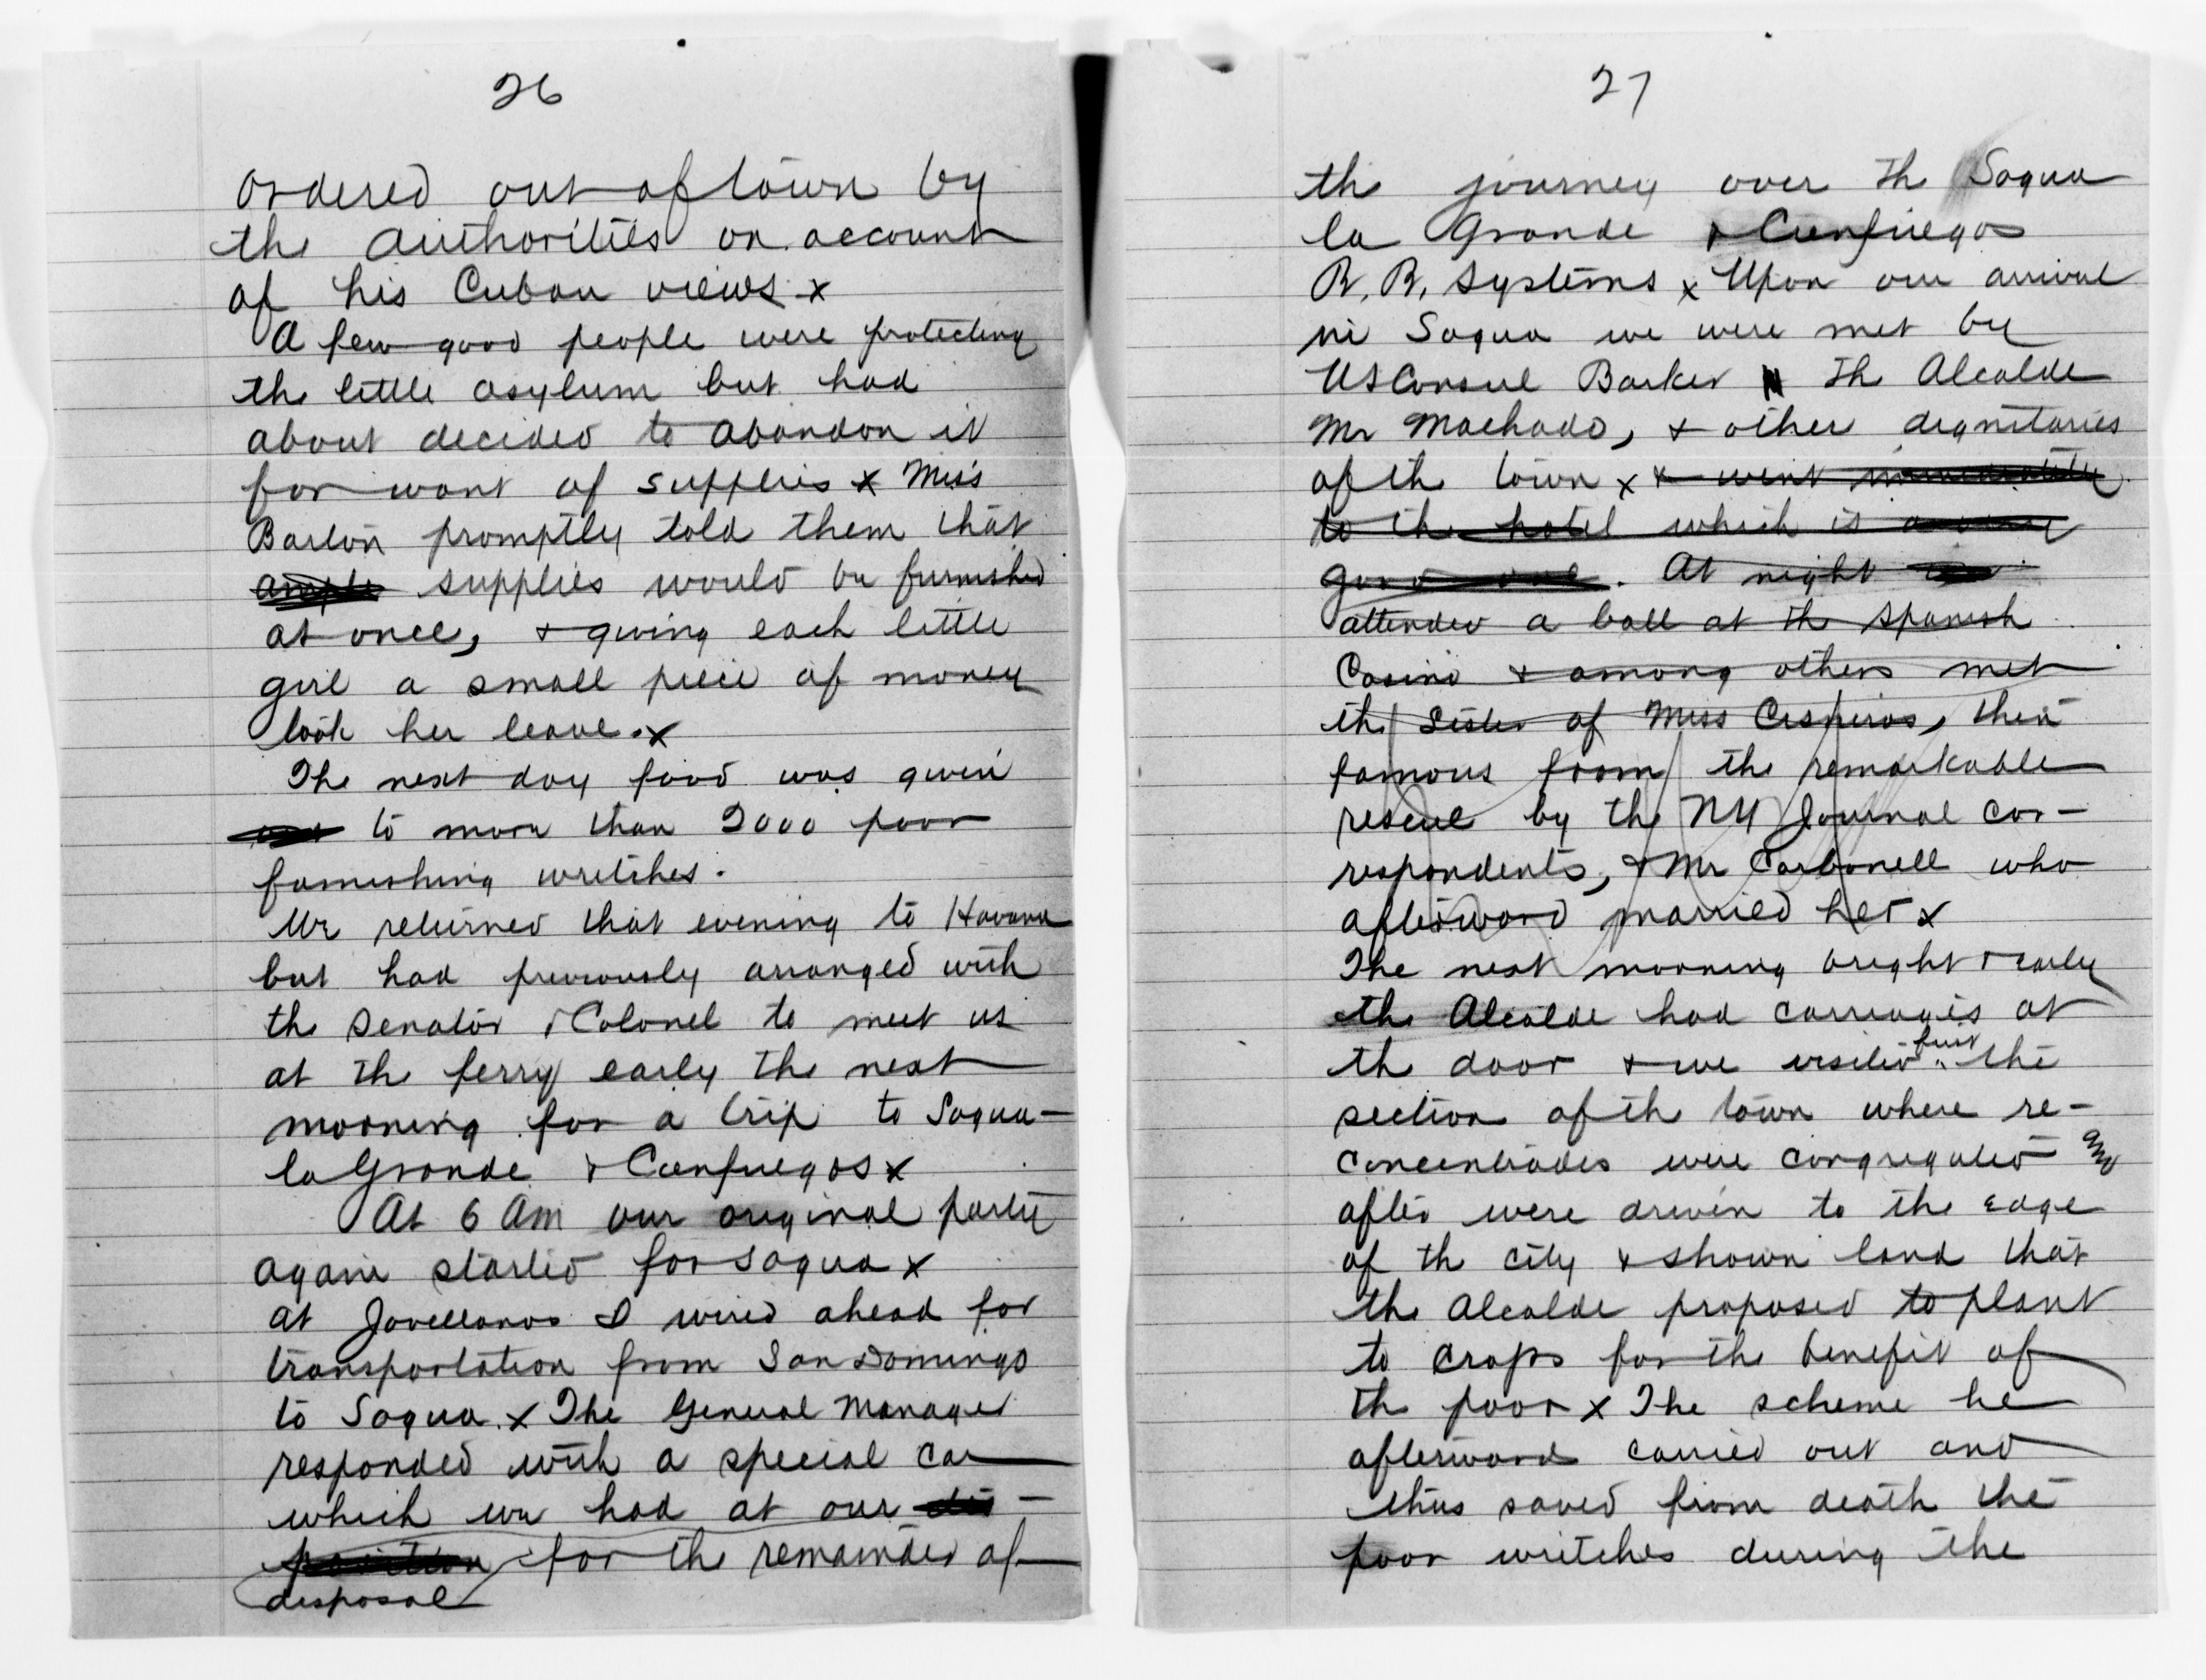 26
ordered out of town by
the authorities on account
of his Cuban views x
A few good people were protecting
the little asylum but had
about decided to abandon it
for want of supplies x Miss
Barton promptly told them that
ample supplies would be furnished
at once, & giving each little
girl a small piece of money
took her leave. x
The next day food was given
to more than 2000 poor
famishing wretches.
We returned that evening to Havana
but had previously arranged with
the Senator & Colonel to meet us
at the ferry early the next
morning for a trip to Sagua-
la Grande & Cienfuegos x
At 6 Am our original party
again started for Sagua x
At Jovellanos I wired ahead for
transportation from San Domingo
to Sagua. x The General Manager
responded with a special car
which we had at our dis-
position for the remainder of
disposal
27
the journey over the Sagua
la Grande & Cienfuegos
R. R. Systems x Upon our arrival
in Sagua we were met by
US Consul Barker The Alcalde
Mr Machado, & other dignitaries
of the town x & went immediately
to the hotel which is a very
good one. At night
attended a ball at the Spanish
Casino & among others met
the Sister of Miss Cisneros, then
famous from the remarkable
rescue by the NY Journal cor-
respondents, & Mr Carbonell who
afterward married her x
The next morning bright & early
the Alcalde had carriages at
the door & we visited first the
section of the town where re-
concentrados were congregated and
after were driven to the edge
of the city & shown land that
the Alcalde proposed to plant
to crops for the benefit of
the poor x The scheme he
afterward carried out and
thus saved from death the
poor writches during the